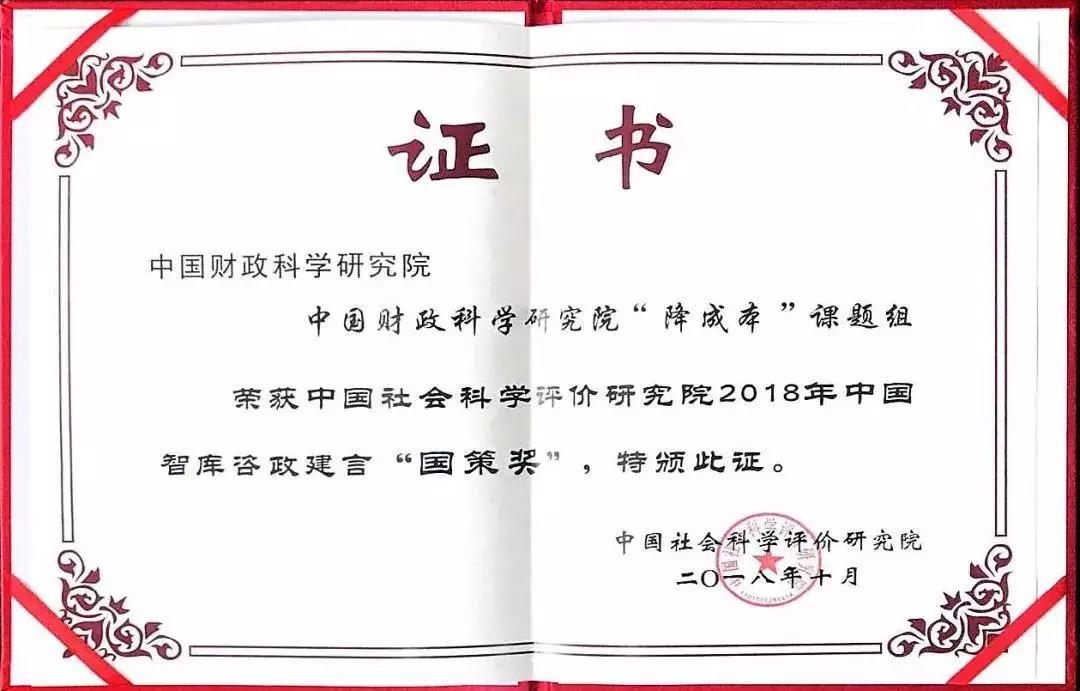 证 书
中国财政科学研究院
中国财政科学研究院“降成本”课题组
荣获中国社会科学评价研究院2018年中国
智库咨政建言“国策奖”，特颁此证。
中国社会科学评价研究院
二〇一八年十月